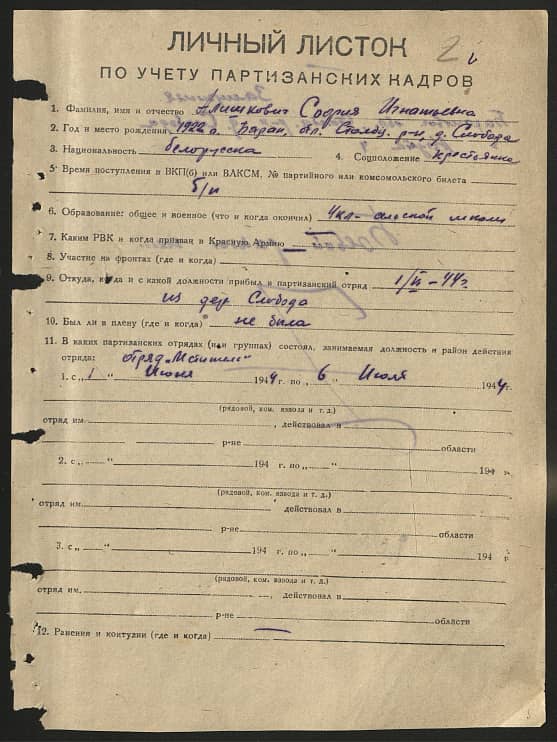 ЛИЧНЫЙ ЛИСТОК
ПО УЧЕТУ ПАРТИЗАНСКИХ КАДРОВ
1. Фамилия, имя и отчество София Игнатьевна
2. Год и место рождения 1922 г. Баран. обл. Столбц. р-н д. Слобода
3. Национальность белорусска 4. Соцположение крестьянка
5. Время поступления в ВКП(б) или ВЛКСМ, № партийного или комсомольского билета
б/п
6. Образование: общее и военное (что и когда окончил) 4 кл. школы
7. Каким РВК и когда призван в Красную Армию
8. Участие на фронтах (где и когда)
9. Откуда, когда и с какой должности прибыл в партизанский отряд 1/VI-44 г.
из дер. Слобода
10. Был ли в плену (где и когда) не была
11. В каких партизанских отрядах (или группах) состоял, занимаемая должность и район действия
отряда: отряд „Мститель"
1. с „ 1 " Июня 1944 г. по „ 6 " Июля 1944 г.
(рядовой, ком. взвода и т. д.)
отряд им. , действовал в
р-не области
2. с „ " 194 г. по „ " 194 г.
(рядовой, ком. взвода и т. д.)
отряд им. действовал в
р-не области
3. с „ " 194 г. по „ " 194 г
(рядовой, ком. взвода и т. д.)
отряд им. , действовал в
р-не области
12. Ранения и контузии (где и когда) —